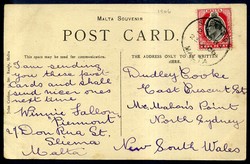 1906
MALTA SOUVENIR
POST CARD.
This space may be used for communication.
THE ADDRESS ONLY TO BE WRITTEN HERE.
I am sending
you these post
Cards and shall
send nicer ones
next time
Winnie Fallon
Piermont
Don Rua St.
Sliema
Malta
Dudley Cooke
East Crescent St
Mc Mahon's Point
North Sydney
New South Wales